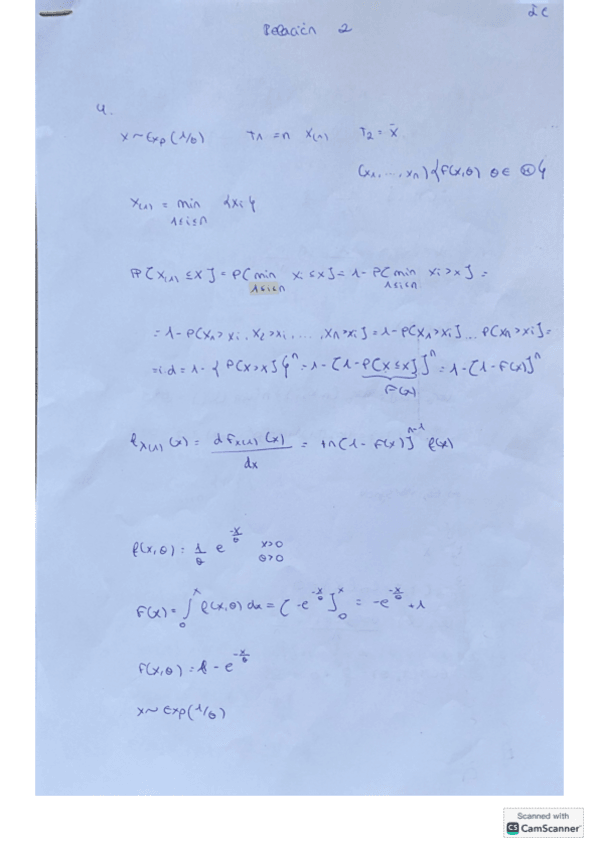 IC
Relación 2
4.
X~Exp(1/θ) T1 = n X(1) T2 = x̄
(x1, ..., xn) {f(x,θ) θ ∈ Θ}
X(1) = min {xi}
1≤i≤n
P[X(1) ≤ x] = P[min xi ≤ x] = 1 - P[min xi > x] =
1≤i≤n 1≤i≤n
= 1 - P(x1 > xi, x2 > xi, ..., xn > xi] = 1 - P(x1 > xi] ... P(xn > xi] =
= i.d = 1 - {P(x > x]}^n = 1 - [1 - P(x ≤ x]]^n = 1 - [1 - F(x)]^n
F(x)
f_X(1)(x) = dF_X(1)(x) / dx = +n[1 - F(x)]^(n-1) f(x)
f(x,θ) = 1/θ e^(-x/θ) x>0
θ>0
F(x) = ∫_0^x f(x,θ) dx = [-e^(-x/θ)]_0^x = -e^(-x/θ) + 1
F(x,θ) = 1 - e^(-x/θ)
X~Exp(1/θ)
Scanned with
CS CamScanner